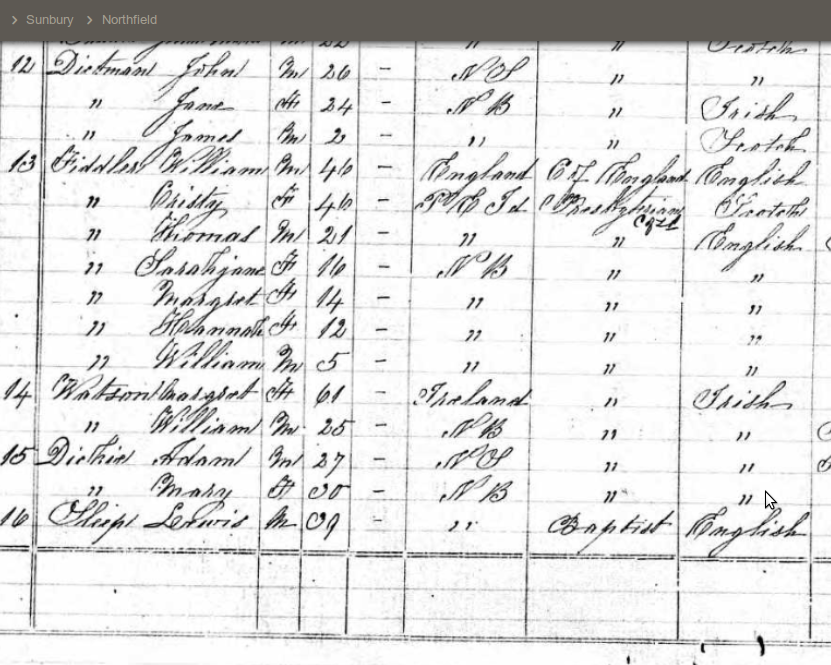 Sunbury > Northfield
M 22 " " Scotch
12 Dickman John M 26 - N S " "
" Jane F 24 - N B " Irish
" James M 2 - " " Scotch
13 Fiddler William M 46 - England C of England English
" Cristy F 46 - P E Id Presbyterian Scotch
" Thomas M 21 - " " English
" Sarahjane F 16 - N B " "
" Margret F 14 - " " "
" Hannah F 12 - " " "
" William M 5 - " " "
14 Watson Margret F 61 - Ireland " Irish
" William M 25 - N B " "
15 Dickie Adam M 27 - N S " "
" Mary F 30 - N B " "
16 Lewis M 39 - " Baptist English